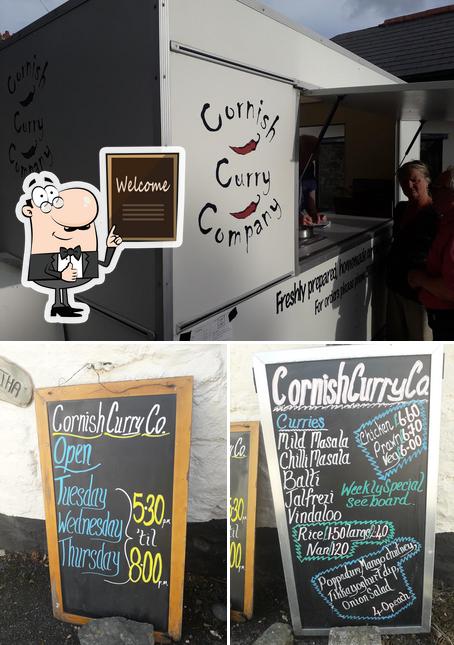 Cornish
Curry
Company
Cornish
Curry
Company
Welcome
Freshly prepared, homemade
For orders please
THA
CornishCurryCo.
Open
Tuesday
Wednesday
Thursday
5:30p.m
'til
8:00p.m
CornishCurryCo
Curries
Mild Masala
Chilli Masala
Balti
Jalfrezi
Vindaloo
Chicken 6.40
Prawn 6.70
Veg 6.00
Weekly Special
see board.
Rice 1.50 large 2.40
Nan 1.20
Poppadum, Mango chutney,
Tikha yoghurt dip,
Onion Salad
40p each